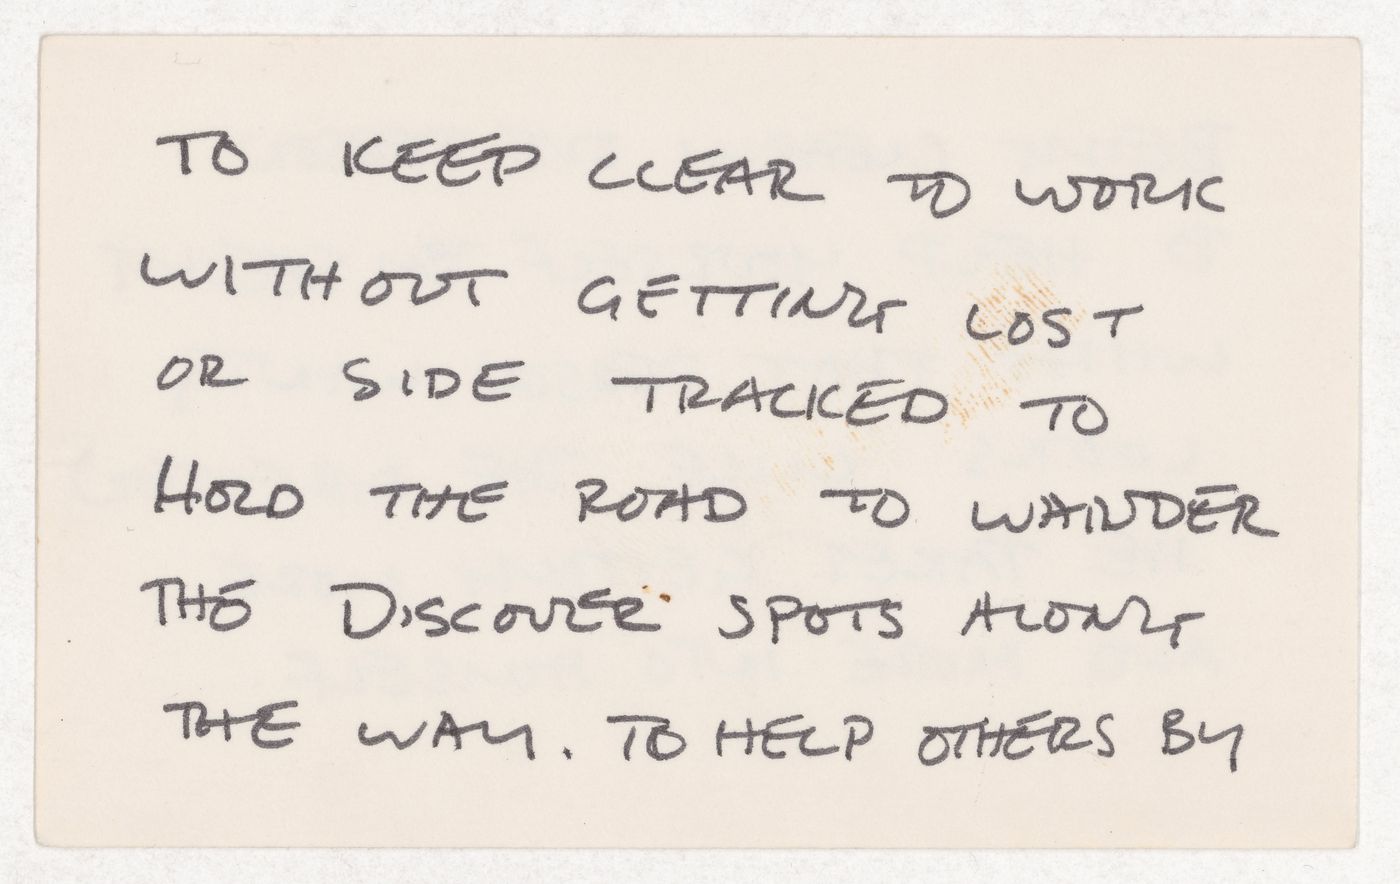 TO KEEP CLEAR TO WORK
WITHOUT GETTING LOST
OR SIDE TRACKED TO
HOLD THE ROAD TO WAINDER
THE DISCOVER SPOTS ALONG
THE WAY. TO HELP OTHERS BY